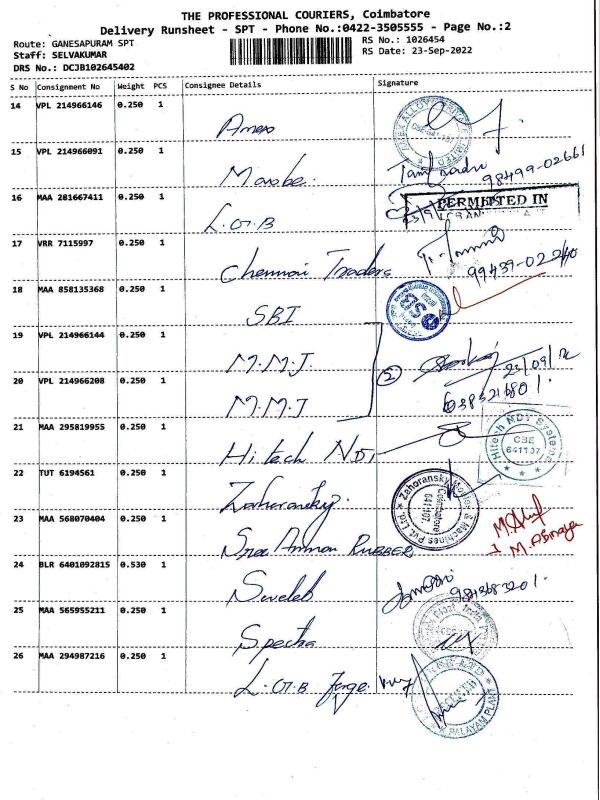 THE PROFESSIONAL COURIERS, Coimbatore
Delivery Runsheet - SPT - Phone No.:0422-3505555 - Page No.:2
Route: GANESAPURAM SPT
RS No.: 1026454
Staff: SELVAKUMAR
RS Date: 23-Sep-2022
DRS No.: DCJB102645402
S No Consignment No Weight PCS Consignee Details Signature
14 VPL 214966146 0.250 1
15 VPL 214966091 0.250 1
98499-02661
16 MAA 281667411 0.250 1 L.G.B
PERMITTED IN
17 VRR 7115997 0.250 1 Chennai Traders
99439-02240
18 MAA 858135368 0.250 1 SBI
19 VPL 214966144 0.250 1 M.M.J.
2
23/09/
20 VPL 214966208 0.250 1 M.M.J
21 MAA 295819955 0.250 1 Hitech NDT
Hitech NDT Systems
CBE
641107
22 TUT 6194561 0.250 1 Zahoransky
Zahoransky Moulds & Machines Pvt. Ltd.
Coimbatore
641 107.
23 MAA 568070404 0.250 1 Sree Amman RUBBER
M. Abinaya
24 BLR 6401092815 0.530 1
25 MAA 565955211 0.250 1 Spectra
26 MAA 294987216 0.250 1 L.G.B Forge